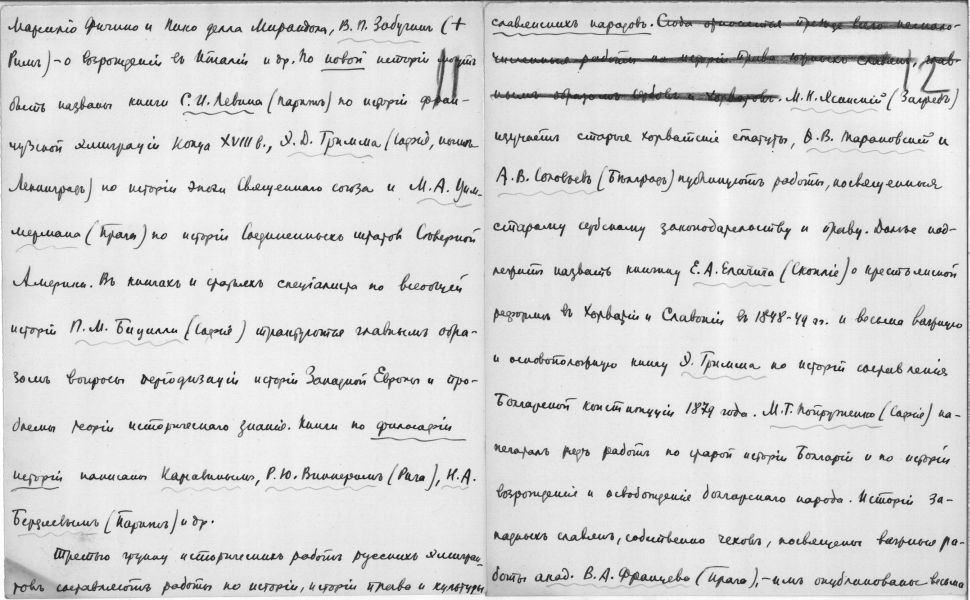 Марсиліо Фичино и Пико делла Мирандола, В. П. Забугинъ (+
Римъ) – о возрожденіи въ Италіи и др. По новой исторіи могутъ
11
быть названы книги С. И. Левина (Парижъ) по исторіи фран-
цузской эмиграціи конца XVIII в., Э. Д. Гримма (Софія, нынѣ
Ленинградъ) по исторіи эпохи Священнаго союза и М. А. Цим-
мермана (Прага) по исторіи Соединенныхъ штатовъ Сѣверной
Америки. Въ книгахъ и статьяхъ спеціалиста по всеобщей
исторіи П. М. Бицилли (Софія) трактуются главнымъ обра-
зомъ вопросы періодизаціи исторіи Западной Европы и про-
блемы теоріи историческаго знанія. Книги по философіи
исторіи написаны Карсавинымъ, Р. Ю. Випперомъ (Рига), Н. А.
Бердяевымъ (Парижъ) и др.
Третью группу историческихъ работъ русскихъ эмигран-
товъ составляютъ работы по исторіи, исторіи права и культуры
славянскихъ народовъ. Сюда относятся прежде всего немного-
численныя работы по исторіи права южныхъ славянъ, глав-
12
нымъ образомъ сербовъ и хорватовъ. М. Н. Ясинскій (Загребъ)
изучаетъ старые хорватскіе статуты, Ѳ. В. Тарановскій и
А. В. Соловьевъ (Бѣлградъ) публикуютъ работы, посвященныя
старому сербскому законодательству и праву. Далѣе над-
лежитъ назвать книжку Е. А. Елачича (Скопліе) о крестьянской
реформѣ въ Хорватіи и Славоніи въ 1848-49 гг. и весьма важную
и основоположную книгу Э. Гримма по исторіи составленія
Болгарской конституціи 1879 года. М. Г. Попруженко (Софія) на-
печаталъ рядъ работъ по старой исторіи Болгаріи и по исторіи
возрожденія и освобожденія болгарскаго народа. Исторіи за-
падныхъ славянъ, собственно чеховъ, посвящены важныя ра-
боты акад. В. А. Францева (Прага), – имъ опубликованы весьма